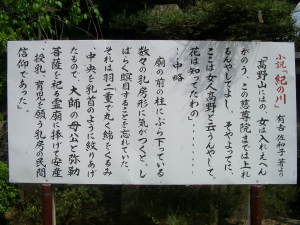 小説「紀の川」 有吉佐和子著より
「高野山にはの、女は入れえへん
かのう、この慈尊院までは上れ
るんやしてよし。そやよってに、
ここは女人高野と云うんやして。
花は知ってたわの・・・・・・・・
・・・中略
廟の前の柱にぶら下っている
数々の乳房形に気がつくと、し
ばらく瞑目することを忘れていた。
それは羽二重で丸く綿をくるみ
中央を乳首のように絞りあげ
たもので、大師の母公と弥勒
菩薩を祀る霊廟に捧げて安産
、授乳、育児を願う乳房の民間
信仰であった」